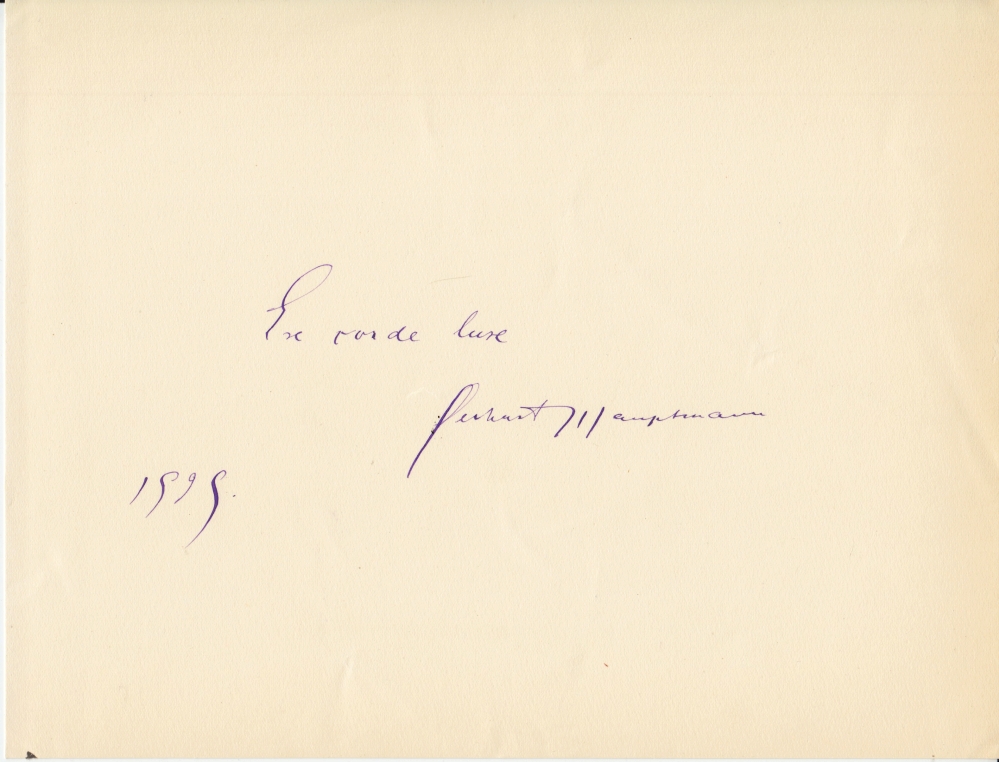 Ex corde lux
Gerhart Hauptmann
1929.